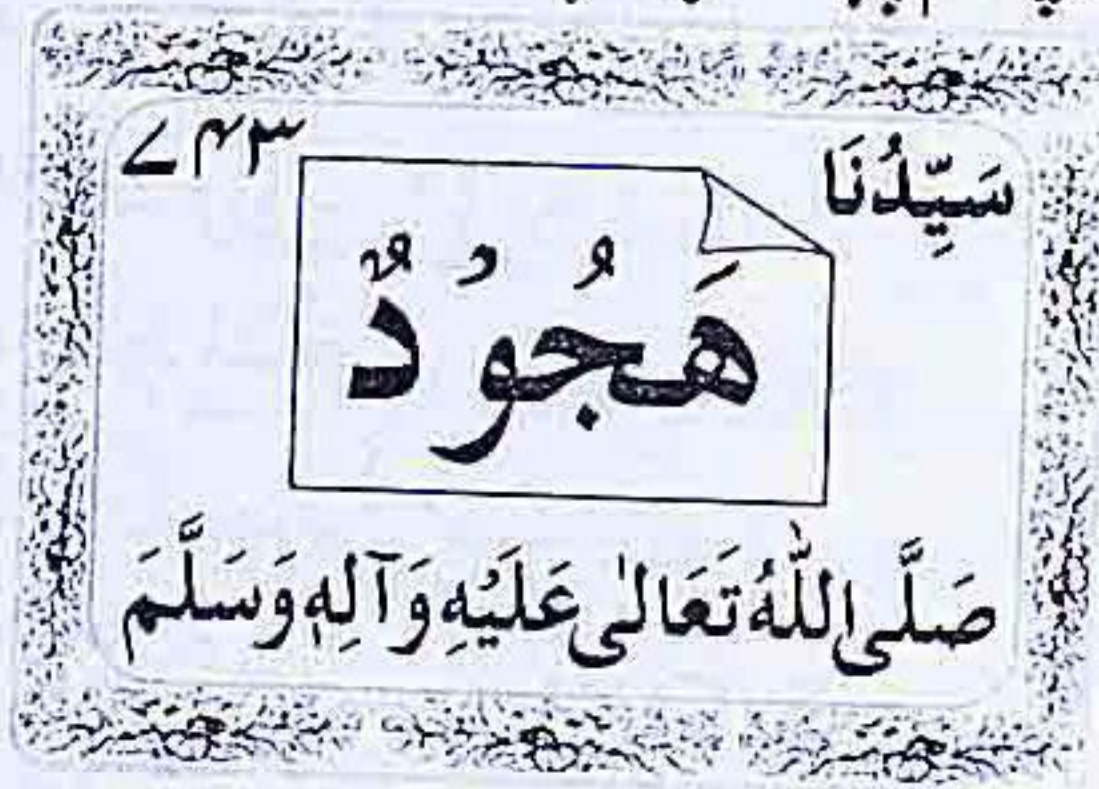 سَيِّدُنَا ۷۴۳
هَجُودٌ
صَلَّى اللّٰهُ تَعَالٰى عَلَيْهِ وَآلِهٖ وَسَلَّمَ